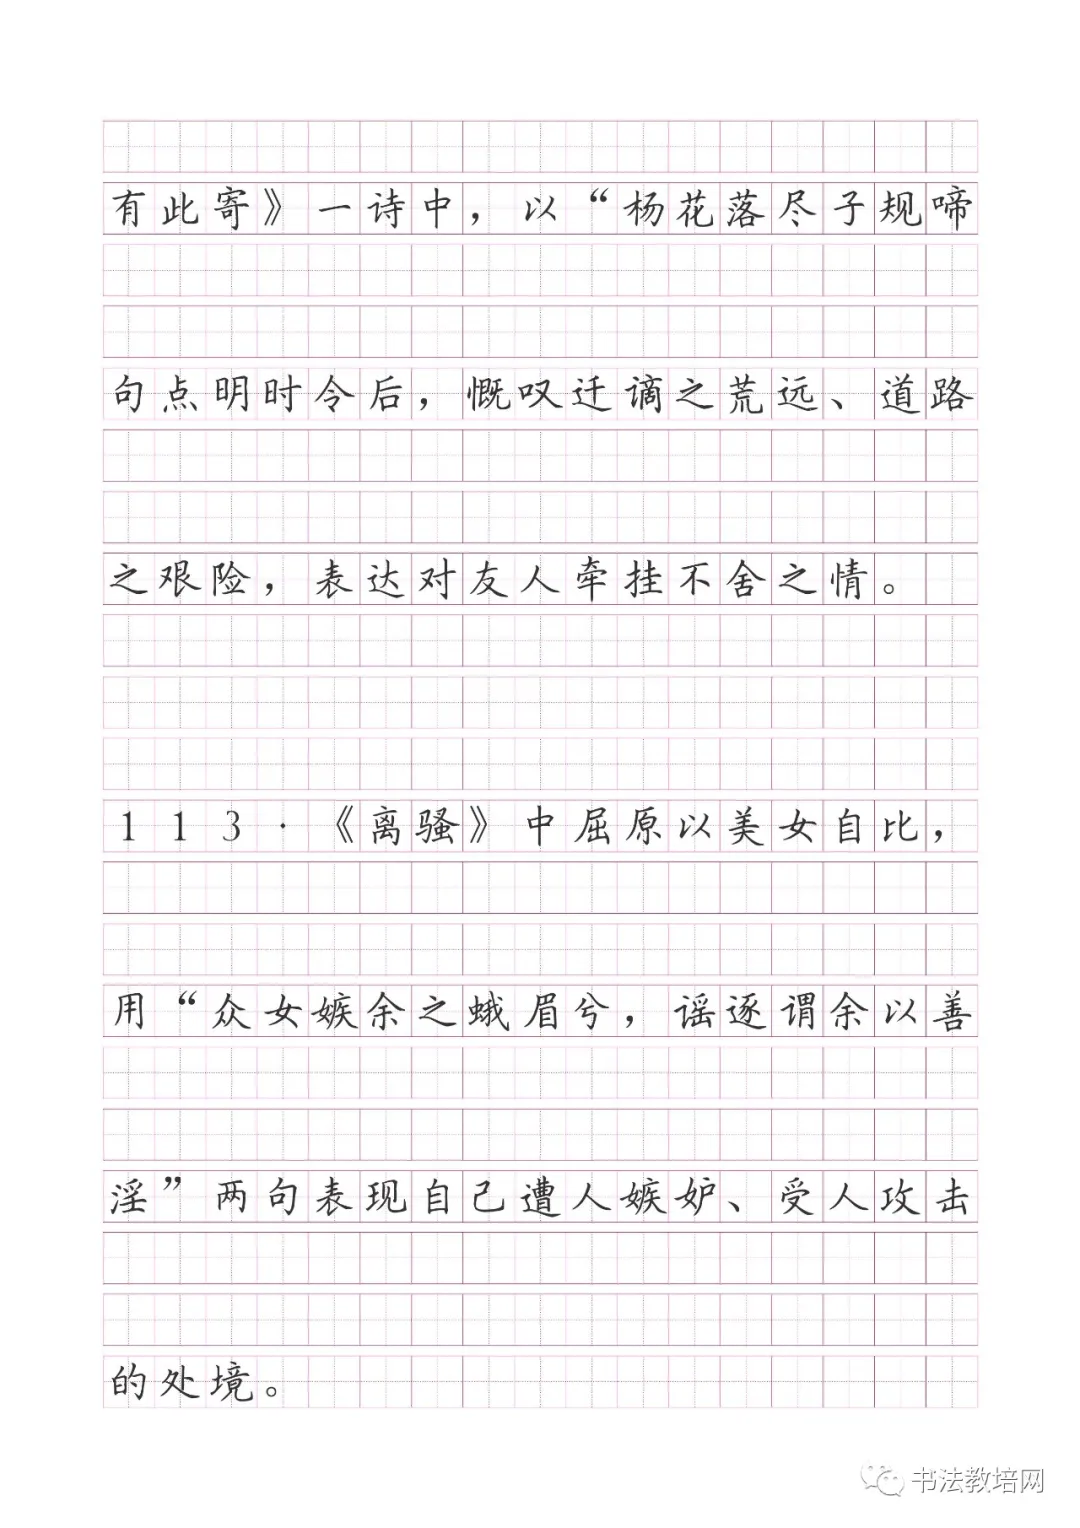 有此寄》一诗中，以“杨花落尽子规啼
句点明时令后，慨叹迁谪之荒远、道路
之艰险，表达对友人牵挂不舍之情。
113·《离骚》中屈原以美女自比，
用“众女嫉余之蛾眉兮，谣逐谓余以善
淫”两句表现自己遭人嫉妒、受人攻击
的处境。
书法教培网